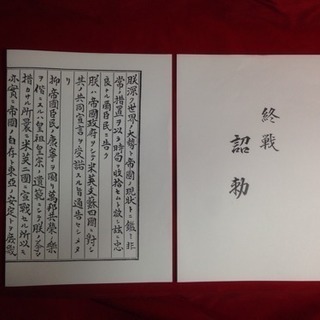 終戦
詔勅
朕深ク世界ノ大勢ト帝國ノ現狀トニ鑑ミ非
常ノ措置ヲ以テ時局ヲ收拾セムト欲シ茲ニ忠
良ナル爾臣民ニ告ク
朕ハ帝國政府ヲシテ米英支蘇四國ニ對シ
其ノ共同宣言ヲ受諾スル旨通告セシメタ
リ
抑〻帝國臣民ノ康寧ヲ圖リ萬邦共榮ノ樂
ヲ偕ニスルハ皇祖皇宗ノ遺範ニシテ朕ノ拳〻
措カサル所曩ニ米英二國ニ宣戰セル所以モ
亦實ニ帝國ノ自存ト東亞ノ安定トヲ庶幾